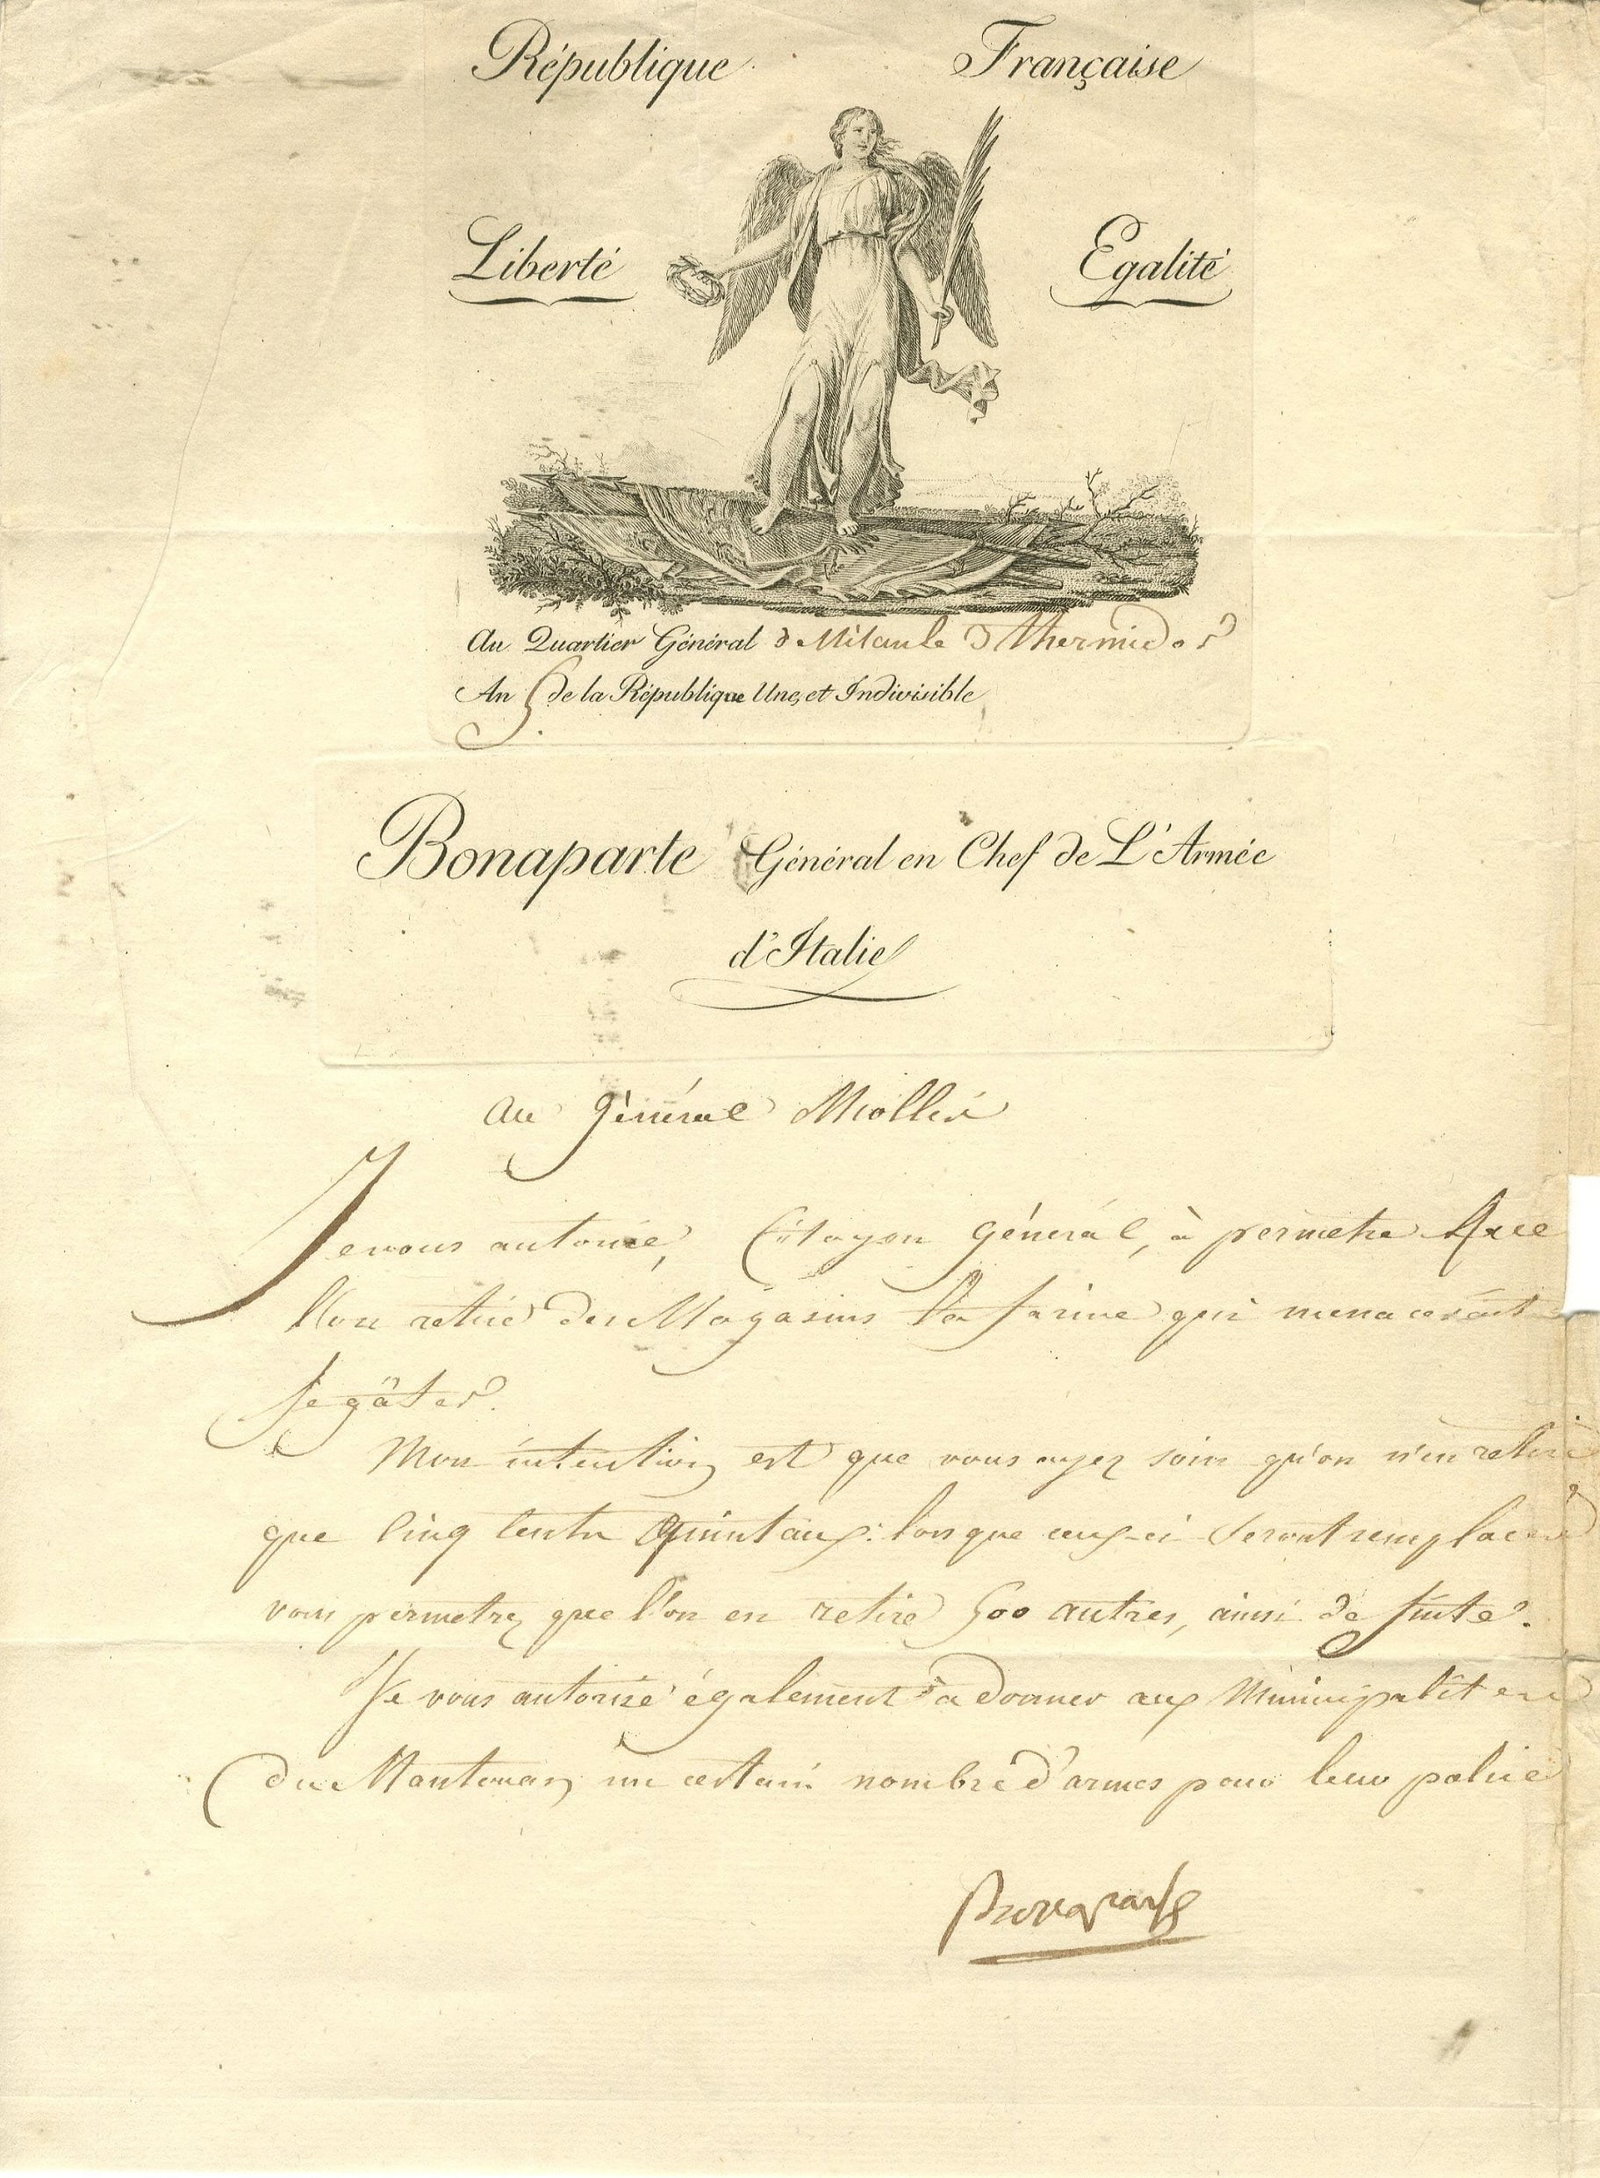 République Française
Liberté Egalité
Au Quartier Général de Milan le 3 thermidor
An 5 de la République Une, et Indivisible
Bonaparte Général en Chef de L'Armée
d'Italie
au Général Miollis
Je vous autorise, Citoyen Général, à permetre que
l'on retire des Magasins la farine qui menacerait
se gâter.
Mon intention est que vous ayez soin qu'on n'en retire
que cinq cents quintaux: lorsque ceux-ci seront remplacés
vous permetrez que l'on en retire 500 autres, ainsi de suite.
Je vous autorise également à donner aux Municipalités
du Mantouan un certain nombre d'armes pour leur police
Bonaparte